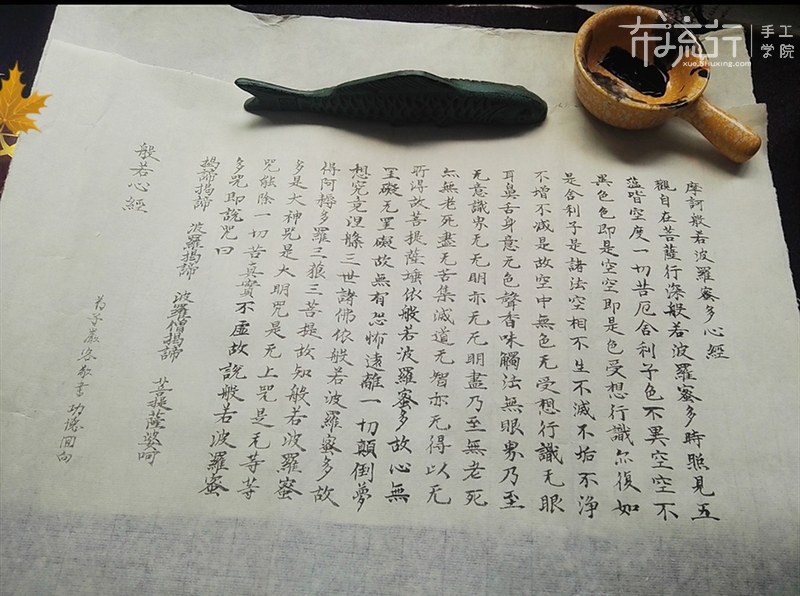 摩訶般若波羅蜜多心經
觀自在菩薩行深般若波羅蜜多時照見五
蕴皆空度一切苦厄舍利子色不異空空不
異色色即是空空即是色受想行識尒復如
是舍利子是諸法空相不生不滅不垢不浄
不增不减是故空中無色无受想行識无眼
耳鼻舌身意无色聲香味觸法無眼界乃至
无意識界无无明亦无无明盡乃至無老死
亦無老死盡无苦集滅道无智亦无得以无
所得故菩提薩埵依般若波羅蜜多故心無
罣礙无罣礙故無有恐怖遠離一切顛倒夢
想究竟涅槃三世諸佛依般若波羅蜜多故
得阿耨多羅三藐三菩提故知般若波羅蜜
多是大神咒是大明咒是无上咒是无等等
咒能除一切苦真實不虛故說般若波羅蜜
多咒即說咒曰
揭諦揭諦 波羅揭諦 波羅僧揭諦 菩提薩婆呵
般若心經
敬書功德回向
布流行
手工学院
xue.buliuxing.com